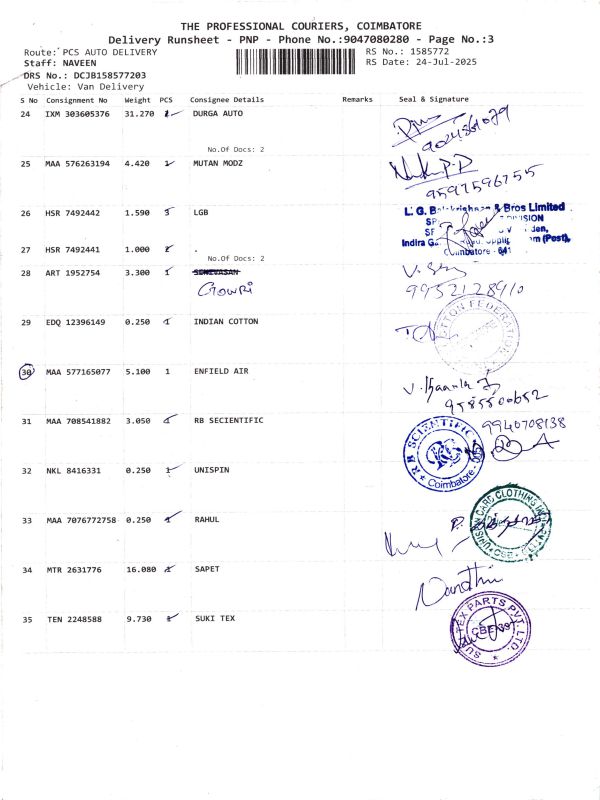 THE PROFESSIONAL COURIERS, COIMBATORE
Delivery Runsheet - PNP - Phone No.:9047080280 - Page No.:3
Route: PCS AUTO DELIVERY RS No.: 1585772
Staff: NAVEEN RS Date: 24-Jul-2025
DRS No.: DCJB158577203
Vehicle: Van Delivery
S No Consignment No Weight PCS Consignee Details Remarks Seal & Signature
24 IXM 303605376 31.270 DURGA AUTO
No.Of Docs: 2
25 MAA 576263194 4.420 1 MUTAN MODZ
9597596755
26 HSR 7492442 1.590 3 LGB
L.G. Balakrishnan & Bros Limited
DIVISION
Indira Ga (Post),
Coimbatore - 641
27 HSR 7492441 1.000
No.Of Docs: 2
28 ART 1952754 3.300 1 SONEVASAN
GOWRI
9952128910
29 EDQ 12396149 0.250 1 INDIAN COTTON
COTTON FEDERATION
30 MAA 577165077 5.100 1 ENFIELD AIR
9585500652
31 MAA 708541882 3.050 RB SECIENTIFIC
9940708138
R B SCIENTIFIC
Coimbatore
32 NKL 8416331 0.250 1 UNISPIN
UNISPIN CARD CLOTHING
33 MAA 7076772758 0.250 1 RAHUL
34 MTR 2631776 16.080 SAPET
Nandhi
35 TEN 2248588 9.730 SUKI TEX
SUKI TEX PARTS PVT. LTD.
CBE-39